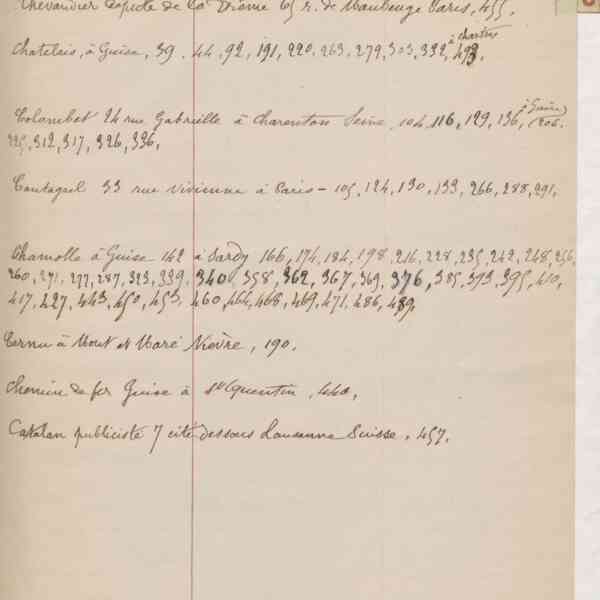 Chevandier député de la Drôme 65 r. de Maubeuge Paris, 455.
à chartres
Chatelais, à Guise, 39. 44, 92, 191, 220, 263, 279, 303, 332, 493.
à Guise
Colombet 24 rue Gabrielle à Charenton Seine, 104, 116, 129, 136, 206.
225, 312, 317, 326, 336,
Coutaguel 33 rue Vivienne à Paris — 105, 124, 130, 133, 266, 288, 291,
Chamolle à Guise 142 à Sardy 166, 174, 184, 198, 216, 228, 235, 242, 248, 256,
260, 271, 277, 287, 323, 339, 340, 358, 362, 367, 369, 376, 385, 393, 395, 410,
417, 427, 443, 450, 453, 460, 466, 468, 469, 471, 486, 489,
Cernu à Mout et Maré Nièvre, 190.
Chemin de fer Guise à St Quentin, 440,
Catalan publiciste 7 cité dessous Lausanne Suisse, 457,